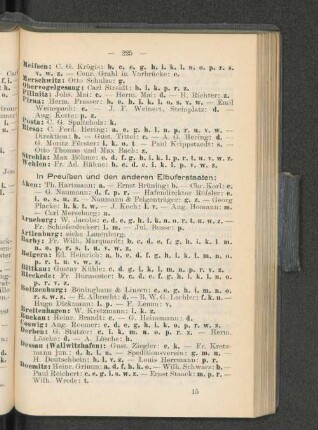 — 225 —
Meißen: C. G. Krögis: b. c. e. g. h. i. k. l. n. o. p. r. s.
v. w. z. — Conr. Grahl in Vorbrücke: e.
Merschwitz: Otto Schulze: g.
Obervogelgesang: Carl Streidt: h. i. k. p. r. z.
Pillnitz: Johs. Mai: c. — Herm. Mai: d. — H. Richter: z.
Pirna: Herm. Prasser: b. e. h. i. k. l. n. o. v. w. — Emil
c. — J. F. Weinert, Steinplatz: d. —
Aug. Kotte: p. z.
Posta: C. G. Spaltcholz: k.
Riesa: C. Ferd. Hering: d. e. g. h. l. n. p. r. u. v. w. —
Direktion: b. — Gust. c. — A. G. Hering: d.
G. Moritz Förster: l. k. o. t. — Paul —
Otto Thomas und Max Bach: z.
Strehla: Max Böhme: e. d. f. g. h. i. k. l. p. r. t. u. v. w. z.
Wehlen: Fr. Ad. Hähne: b. c. d. e. g. h. k. l. o. p. u. v. w. z.
In Preußen und den anderen Elbuferstaaten:
Aken: Th. Hartmann: a. — Ernst Brüning: b. — Chr. Korl: c.
G. Naumann: d. f. p. — Hafendirektor Rößler: e.
i. o. u. z. — Naumann & Felgenträger: g. z. — Georg
Placke: h. k. t. w. — J. Koch: l. r. — Aug. m. —
Carl Merseburg: n.
Arneburg: W. Jacobs: c. d. e. g. h. i. k. n. o. r. t. u. w. z. —
Fr. Schiefferdecker: l. m. — Jul. Busse: p.
Artlenburg: siehe Lauenburg.
Barby: Fr. Wilh. Marquardt: b. c. d. e. f. g. h. i. k. l. m.
n. o. p. r. s. t. u. v. w. z.
Belgern: Ed. Heinrich: a. b. c. d. f. g. h. i. k. l. m. n. o. p.
r. t. u. v. w. z.
Bittkau: Gustav Kühle: c. d. g. i. k. l. m. n. p. r. t. u. w. z.
Bleckede: Fr. Burmester: b. c. d. e. g. h. i. k. l. n. o. p. r. t. u.
v. w. z.
Boitzenburg: Böninghaus & Lausen: c. e. g. h. i. n. o. r. t. u.
w. z. — H. Albrecht: d. — B. W. G. Lechler: f. k. n. —
Hugo Dieckmann: l. p. — F. Lemm: v.
Breitenhagen: W. Kretzmann: l. k. g.
Buckau: Heinr. Brandt: c. — G. Heinemann: d.
Coswig: Aug. Roemer: c. d. e. g. h. i. k. o. p. r. t. w. z.
Derben: G. Stutzer: c. l. k. m. n. o. p. r. z. — Herm.
Lösche: d. — A. Lösche: h.
Dessau (Wallwitzhafen): Gust. Ziegler: c. k. — Fr. Kretz-
mann jun.: d. h. l. z. — Speditionsverein: g. m. n. —
H. Deutschbein: h. i. v. — Louis Herrmann: p. r.
Doemitz: Heinr. Grimm: a. d. f. h. k. o. — Wilh. Schwarz: b. —
Paul Reichert: c. e. g. l. v. w. — Ernst Stauck: m. p. r.
Wilh. Wrede: t.
15